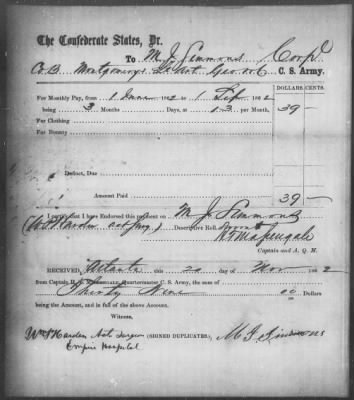 The Confederate States, Dr.
To M. J. Simmons Corpl
Co. B Montgomery's C. S. Army.
DOLLARS CENTS.
For Monthly Pay, from 1 June 1862 to 1 Sep 1862
being 3 Months Days, at 13 per Month, 39 –
For Clothing
For Bounty
Deduct, Due
Amount Paid 39 –
I certify that I have Endorsed this payment on M. J. Simmons
Descriptive Roll.
Captain and A. Q. M.
RECEIVED, Atlanta this 20 day of Nov 1862
from Captain Quartermaster C. S. Army, the sum of
Thirty Nine 00 Dollars
being the Amount, and in full of the above Account.
Witness,
Wm Harden Act Surgeon (SIGNED DUPLICATES,) M. J. Simmons
Empire Hospital